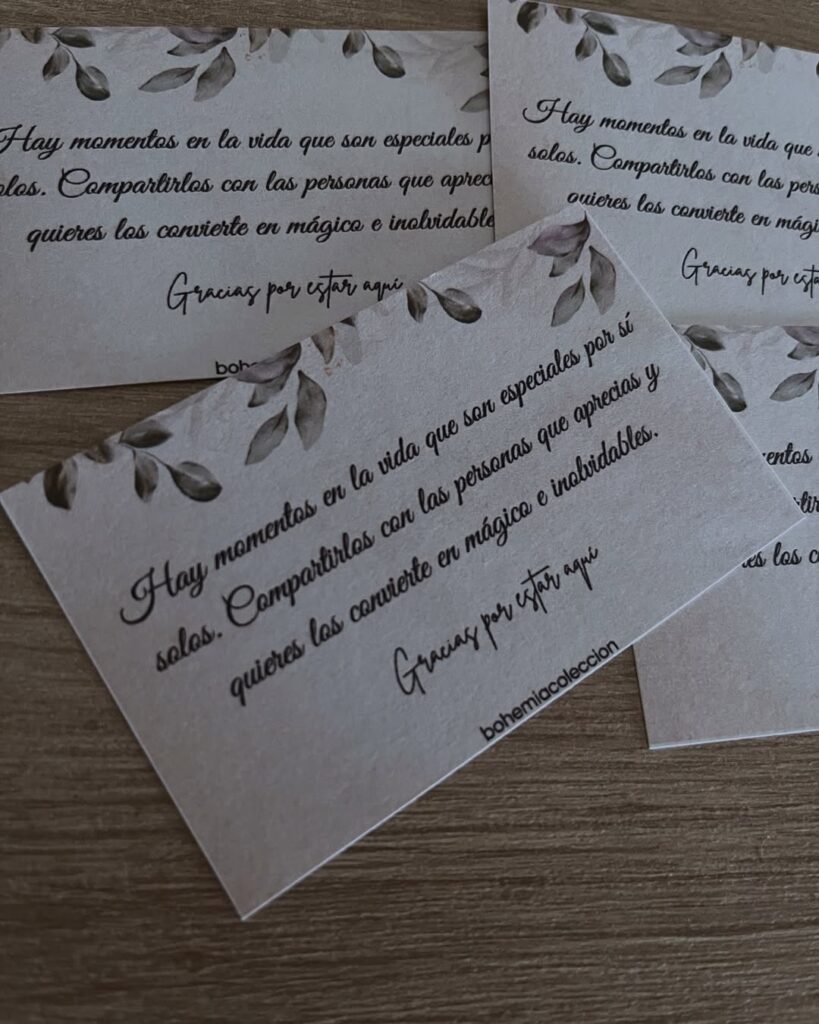 Hay momentos en la vida que son especiales p
olos. Compartirlos con las personas que aprec
quieres los convierte en mágico e inolvidable
Gracias por estar aquí
boh
Hay momentos en la vida que
solos. Compartirlos con las pers
quieres los convierte en mági
Gracias por esta
Hay momentos en la vida que son especiales por sí
solos. Compartirlos con las personas que aprecias y
quieres los convierte en mágico e inolvidables.
Gracias por estar aquí
bohemiacoleccion
entos
rtir
es los c